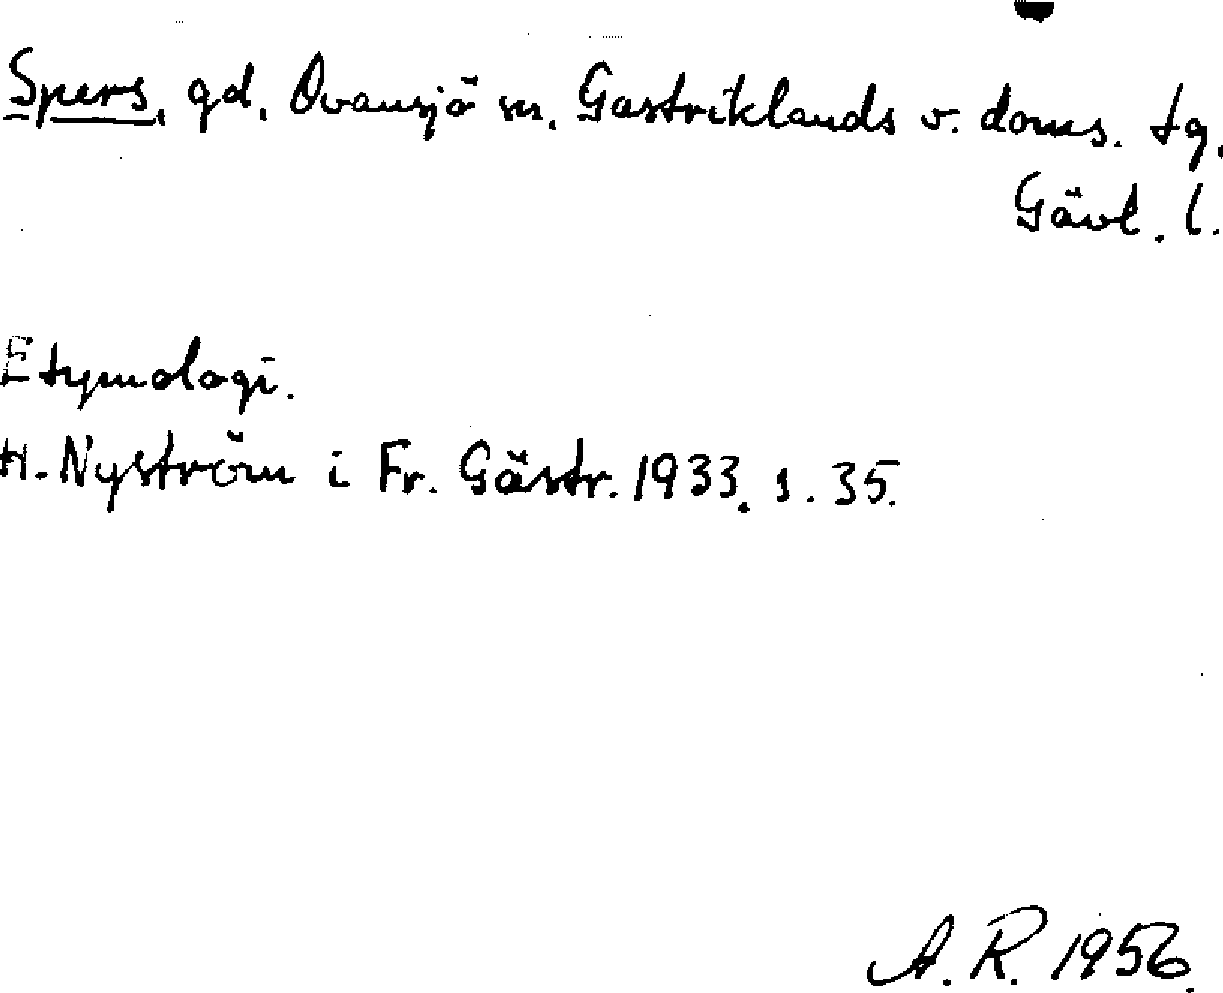 Spers, gd, Ovansjö sn, Gästriklands v. doms. tg.
Gävl. l.
Etymologi.
H. Nyström i Fr. Gästr. 1933. s. 35.
A. R. 1956.